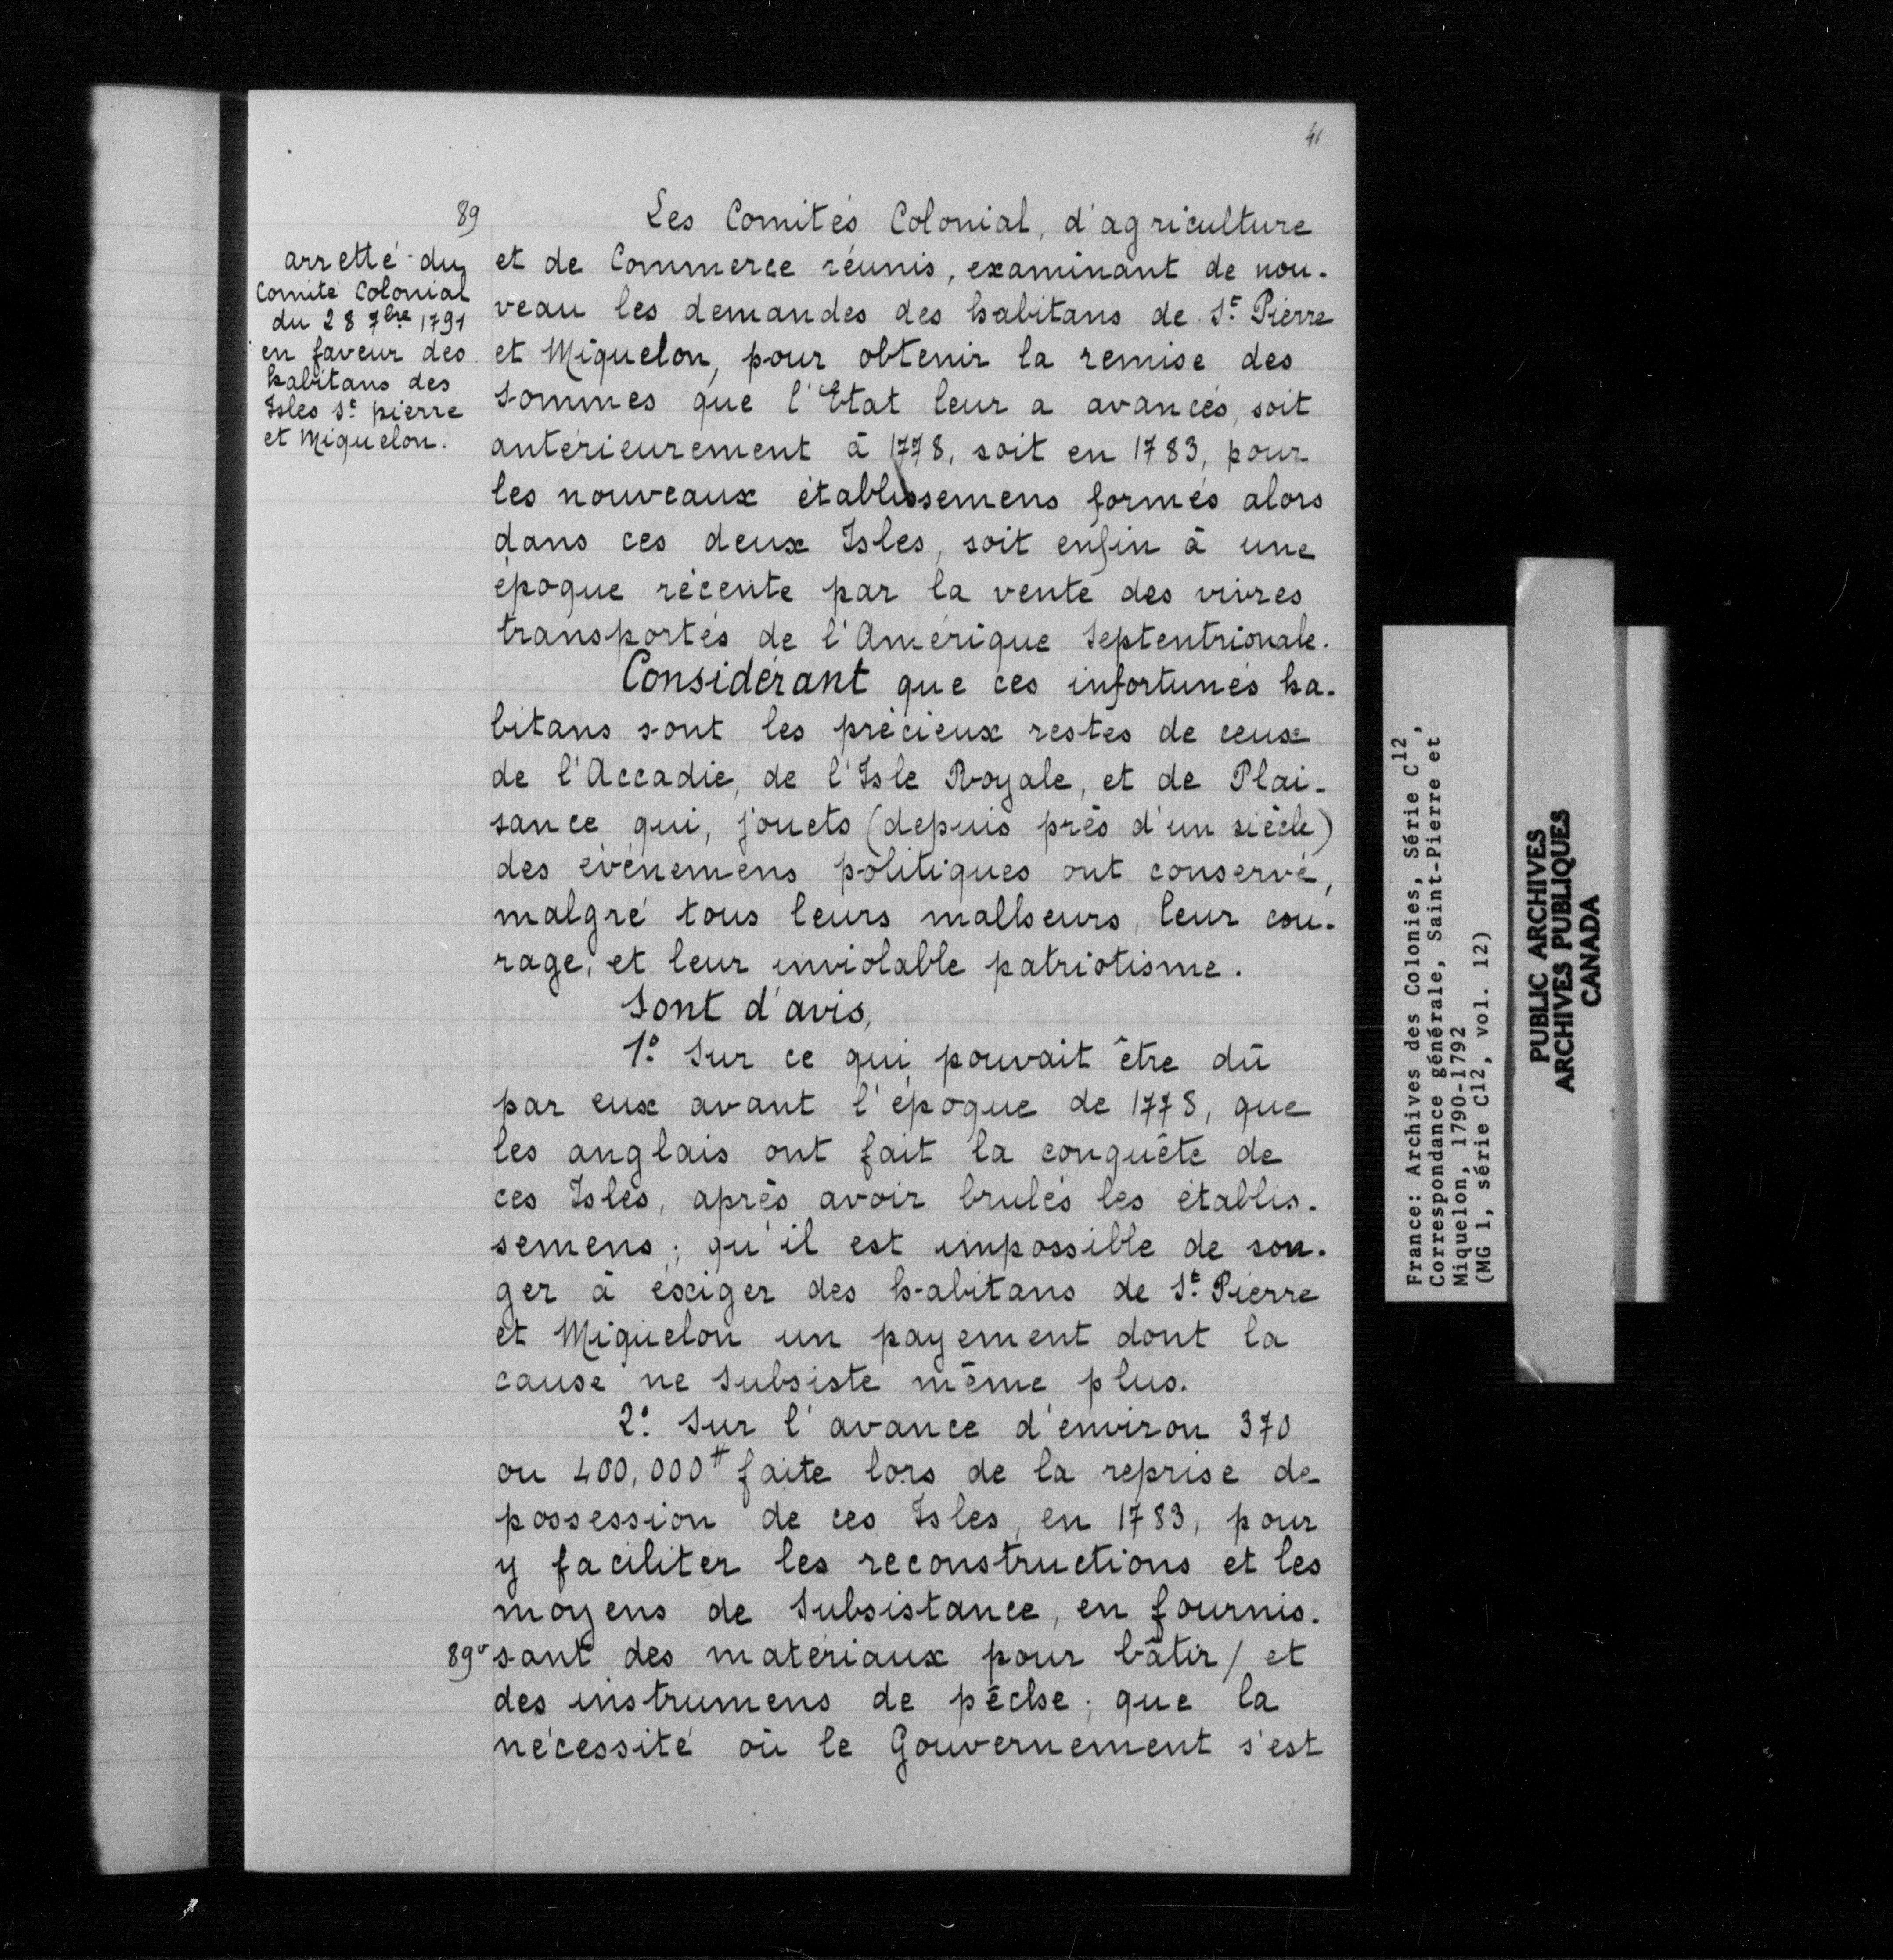 41
89
arretté du
Comité Colonial
du 28 7bre 1791
en faveur des
habitans des
Isles St pierre
et Miquelon.
Les Comités Colonial, d'agriculture
et de Commerce réunis, examinant de nou-
veau les demandes des habitans de St Pierre
et Miquelon, pour obtenir la remise des
sommes que l'Etat leur a avancés, soit
antérieurement à 1778, soit en 1783, pour
les nouveaux établissemens formés alors
dans ces deux Isles, soit enfin à une
époque récente par la vente des vivres
transportés de l'Amérique Septentrionale.
Considérant que ces infortunés ha-
bitans sont les précieux restes de ceux
de l'Accadie, de l'Isle Royale, et de Plai-
sance qui, jouets (depuis près d'un siècle)
des evénemens politiques ont conservé,
malgré tous leurs malheurs, leur cou-
rage, et leur inviolable patriotisme.
Sont d'avis,
1º Sur ce qui pouvait être dû
par eux avant l'époque de 1778, que
les anglais ont fait la conquête de
ces Isles, après avoir brulés les établis-
semens; qu'il est impossible de son-
ger à éxiger des habitans de St Pierre
et Miquelon un payement dont la
cause ne subsiste même plus.
2º Sur l'avance d'environ 370
ou 400,000# faite lors de la reprise de
possession de ces Isles, en 1783, pour
y faciliter les reconstructions et les
moyens de subsistance, en fournis-
89v sant des matériaux pour bâtir / et
des instrumens de pêche; que la
nécessité où le Gouvernement s'est
France: Archives des Colonies, Série C12,
Correspondance générale, Saint-Pierre et
Miquelon, 1790-1792
(MG 1, série C12, vol. 12)
PUBLIC ARCHIVES
ARCHIVES PUBLIQUES
CANADA